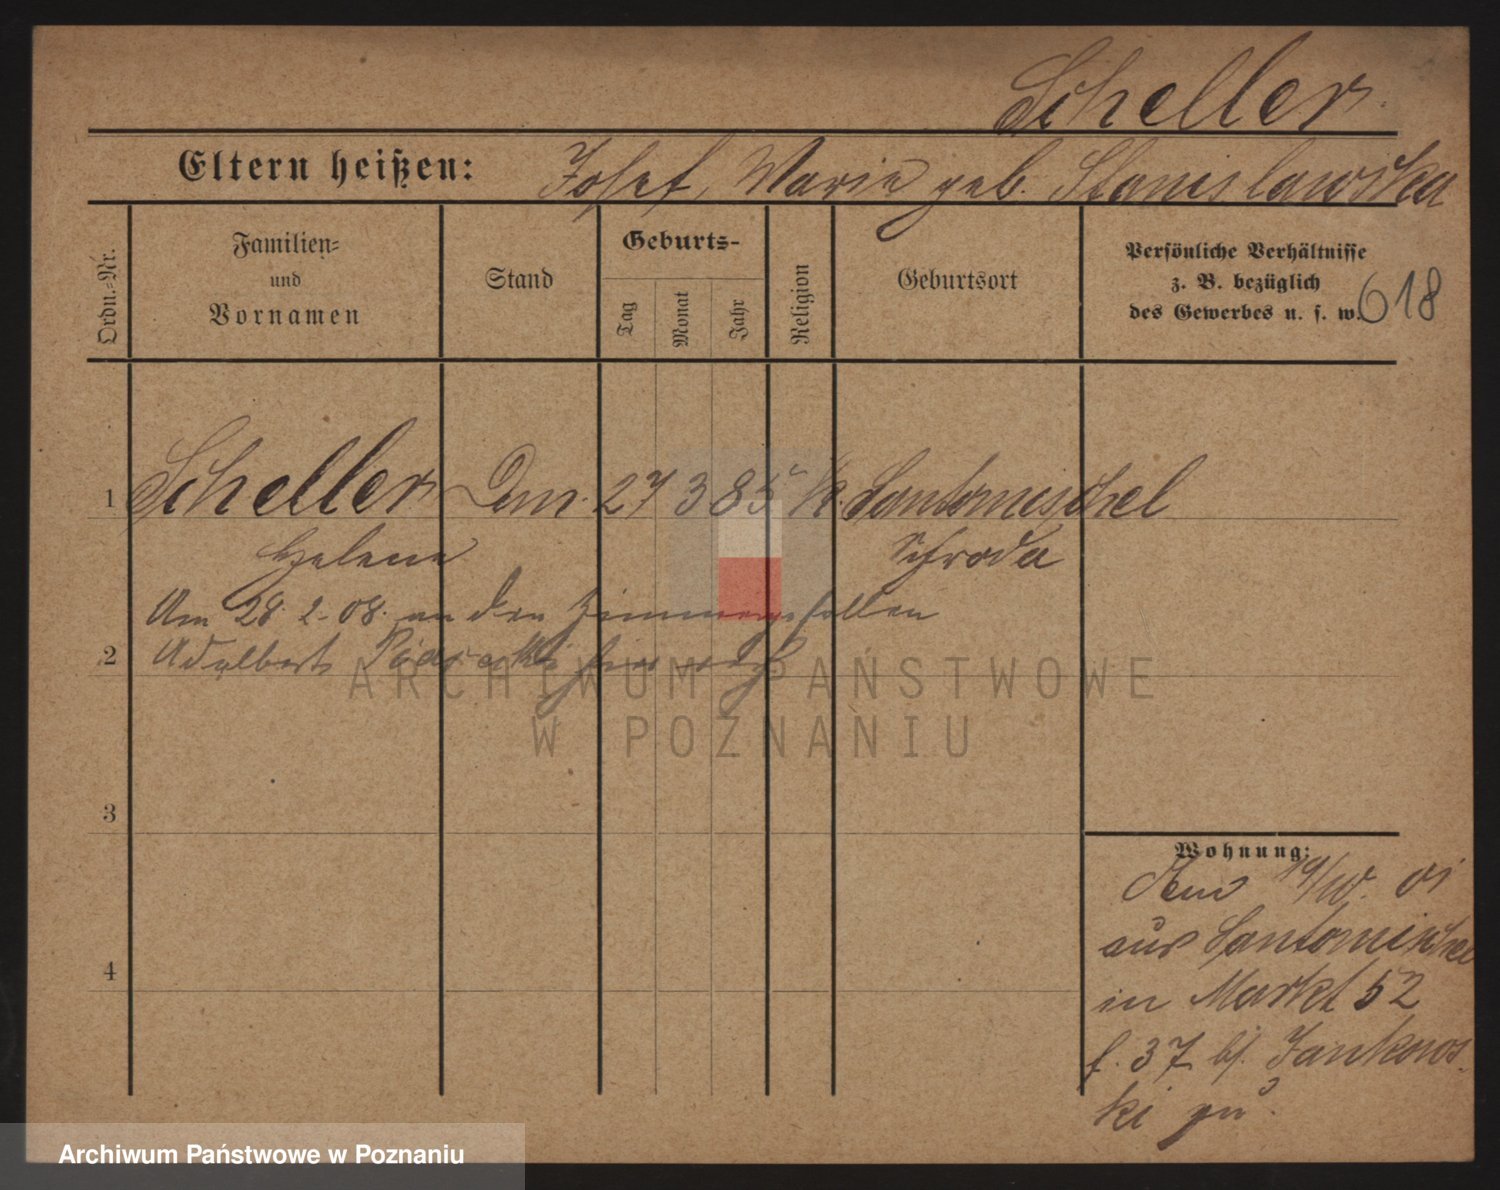 Scheller
Eltern heißen: Josef, Marie geb. Stanislawska
Ordn.-Nr.
Familien-
und
Vornamen
Stand
Geburts-
Tag
Monat
Jahr
Religion
Geburtsort
Persönliche Verhältnisse
z. B. bezüglich
des Gewerbes u. s. w.
618
1 Scheller 27 3 85 k. Santomischel
Helene Schroda
Am 28. 2. 08. an den Zimmergesellen
2 Adalbert
3
4
Wohnung:
01
aus Santomischel
in Markt 52
f. 37 b/. Jankows-
ki
ARCHIWUM PAŃSTWOWE
W POZNANIU
Archiwum Państwowe w Poznaniu